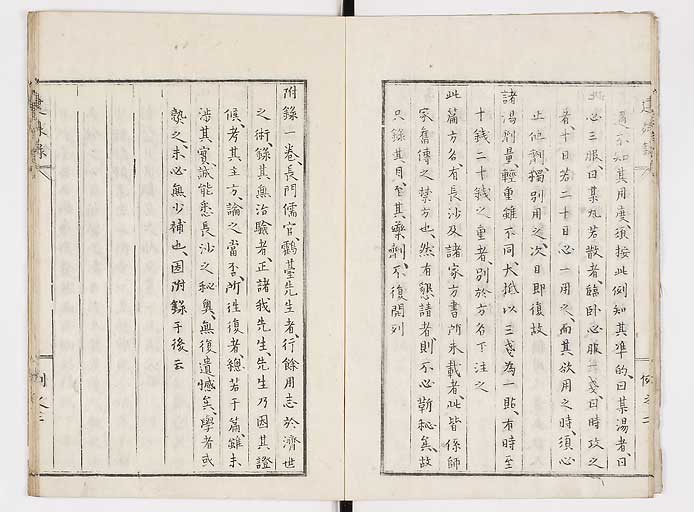 不知其用度須按此例知其準的曰某湯者日
必三服曰某丸若散者臨臥必服曰時攻之
者十日若二十日必一用之而其欲用之時須必
止他劑獨別用之次日即復故
諸湯劑量輕重雖不同大抵以三錢為一貼有時至
十錢二十錢之重者別於方名下注之
此篇方名有長沙及諸家方書所未載者此皆係師
家奮傳之禁方也然有懇請者則不必靳秘矣故
只錄其目至其藥劑不復開列
例之二
附錄一卷長門儒官鶴臺先生者行餘用志於濟世
之術錄其無治驗者正諸我先生先生乃因其證
候考其主方論之當否所往復者總若干篇雖未
涉其實誠能悉長沙之秘奧無復遺憾矣學者或
熟之未必無少補也因附錄于後云
建殊錄
例之三